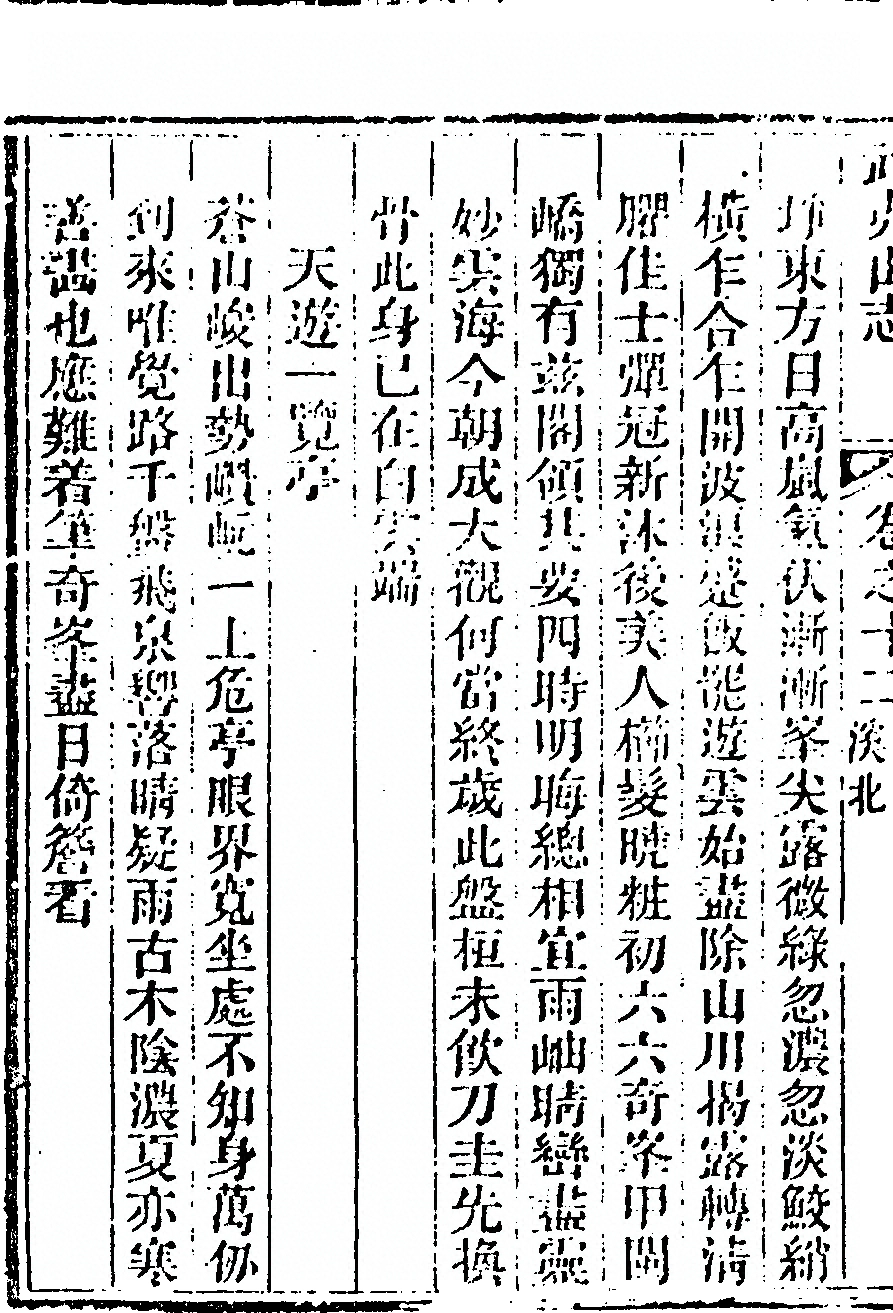 武夷山志 卷之十二 溪北
埽東方日高嵐氣伏漸漸峯尖露微綠忽濃忽淡鮫綃
橫乍合乍開波浪蹙飯罷遊雲始盡除山川揭露轉淸
臞佳士彈冠新沐後美人櫛髮曉粧初六六奇峯甲閩
嶠獨有兹閣領其要四時明晦總相宜雨岫晴巒盡靈
妙雲海今朝成大觀何當終歲此盤桓未飲刀圭先換
骨此身已在白雲端
天遊一覽亭
蒼山峻出勢巑岏一上危亭眼界寬坐處不知身萬仞
到來唯覺路千盤飛泉響落晴疑雨古木陰濃夏亦寒
善謔也應難着筆奇峯盡日倚簷看